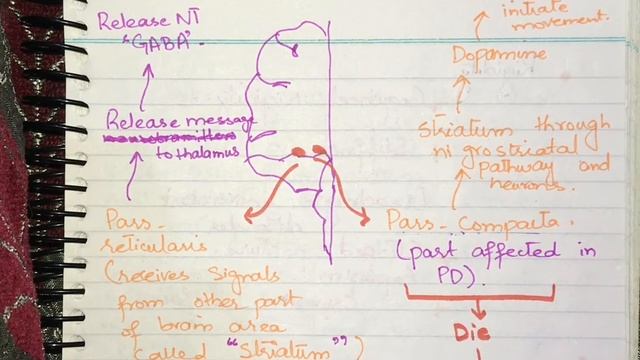 Release NT
"GABA".
Release message
to thalamus
Pass-
reticularis
(receives signals
from other part
of brain area
called "Striatum")
initiate
movement.
Dopamine
Striatum through
nigrostriatal
pathway and
neurons.
Pass-compacta.
(part affected in
PD).
Die